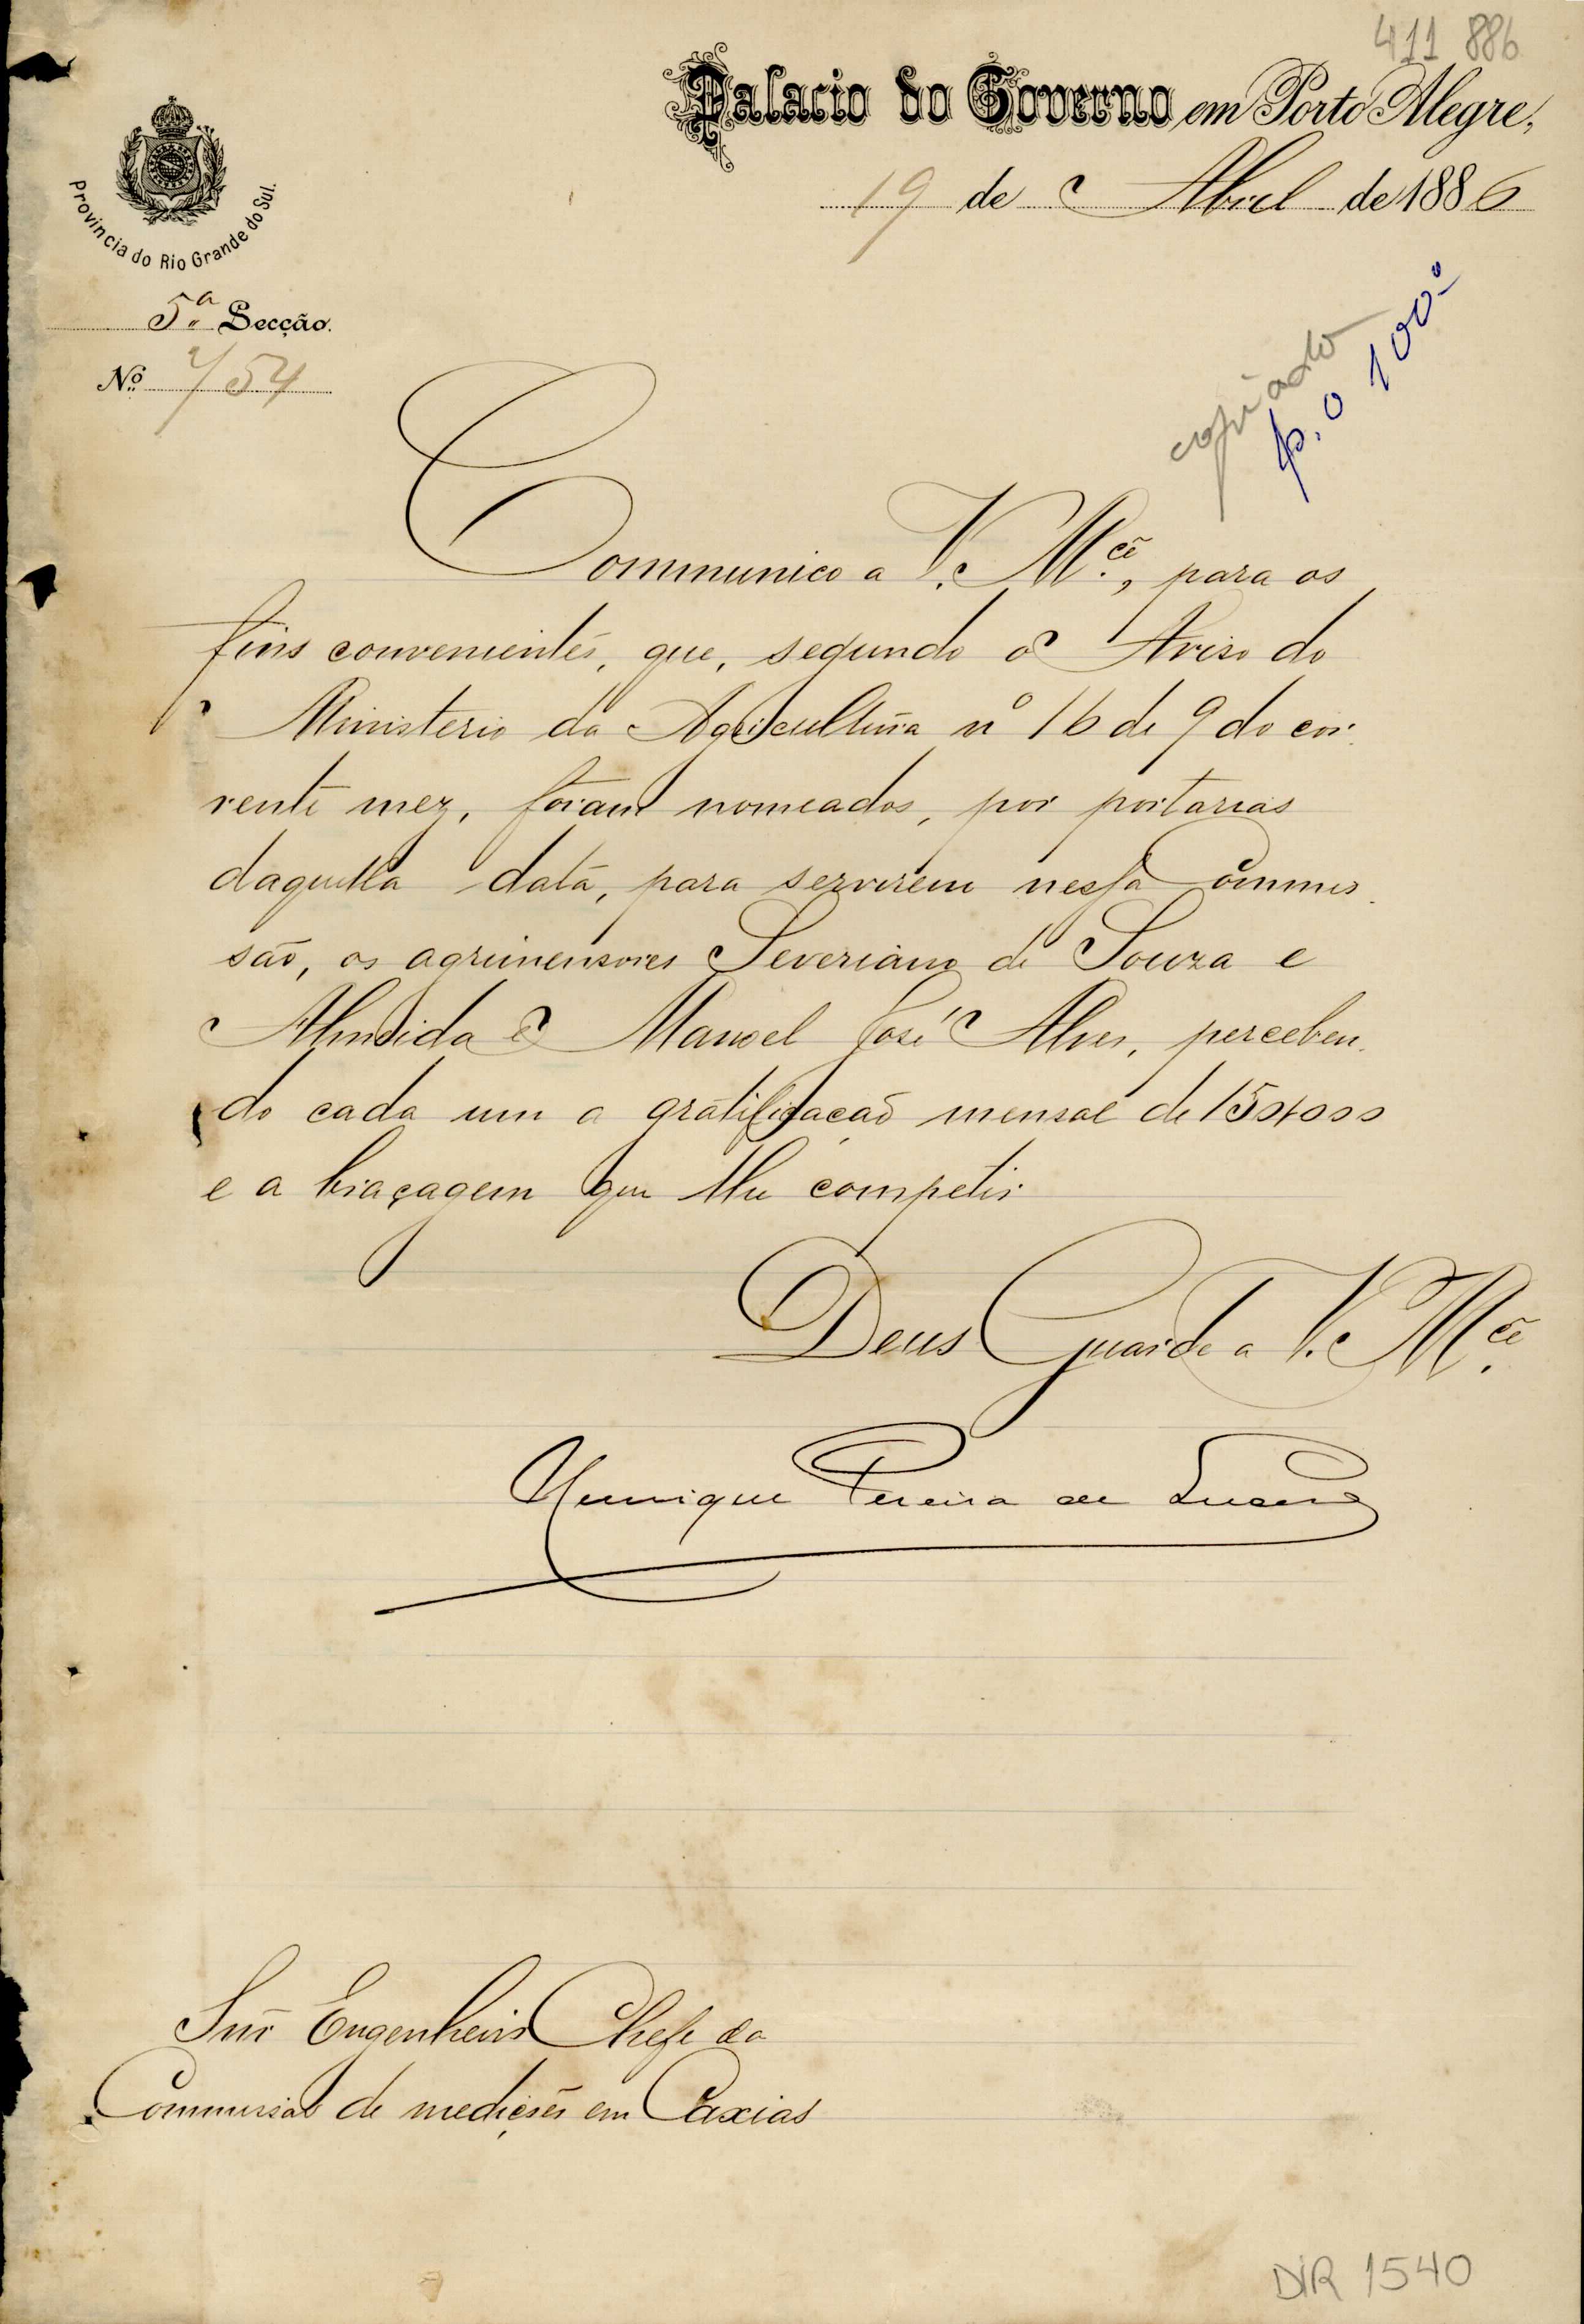 411 886
Palacio do Governo em Porto Alegre,
19 de Abril de 1886
Provincia do Rio Grande do Sul.
5ª Secção.
Nº 754
copiado
p. o 100.º
Communico a V. Mcê, para os
fins convenientes, que, segundo o Aviso do
Ministerio da Agricultura nº 16 de 9 do cor-
rente mez, foram nomeados, por portarias
daquella data, para servirem nessa Commis-
são, os agrimensores Severiano de Souza e
Almeida e Manoel José Alves, perceben-
do cada um a gratificação mensal de 150$000
e a braçagem que lhe competir
Deus Guarde a V. Mcê.
Henrique Pereira de Lucena
Snr Engenheiro Chefe da
Commissão de medições em Caxias
DIR 1540